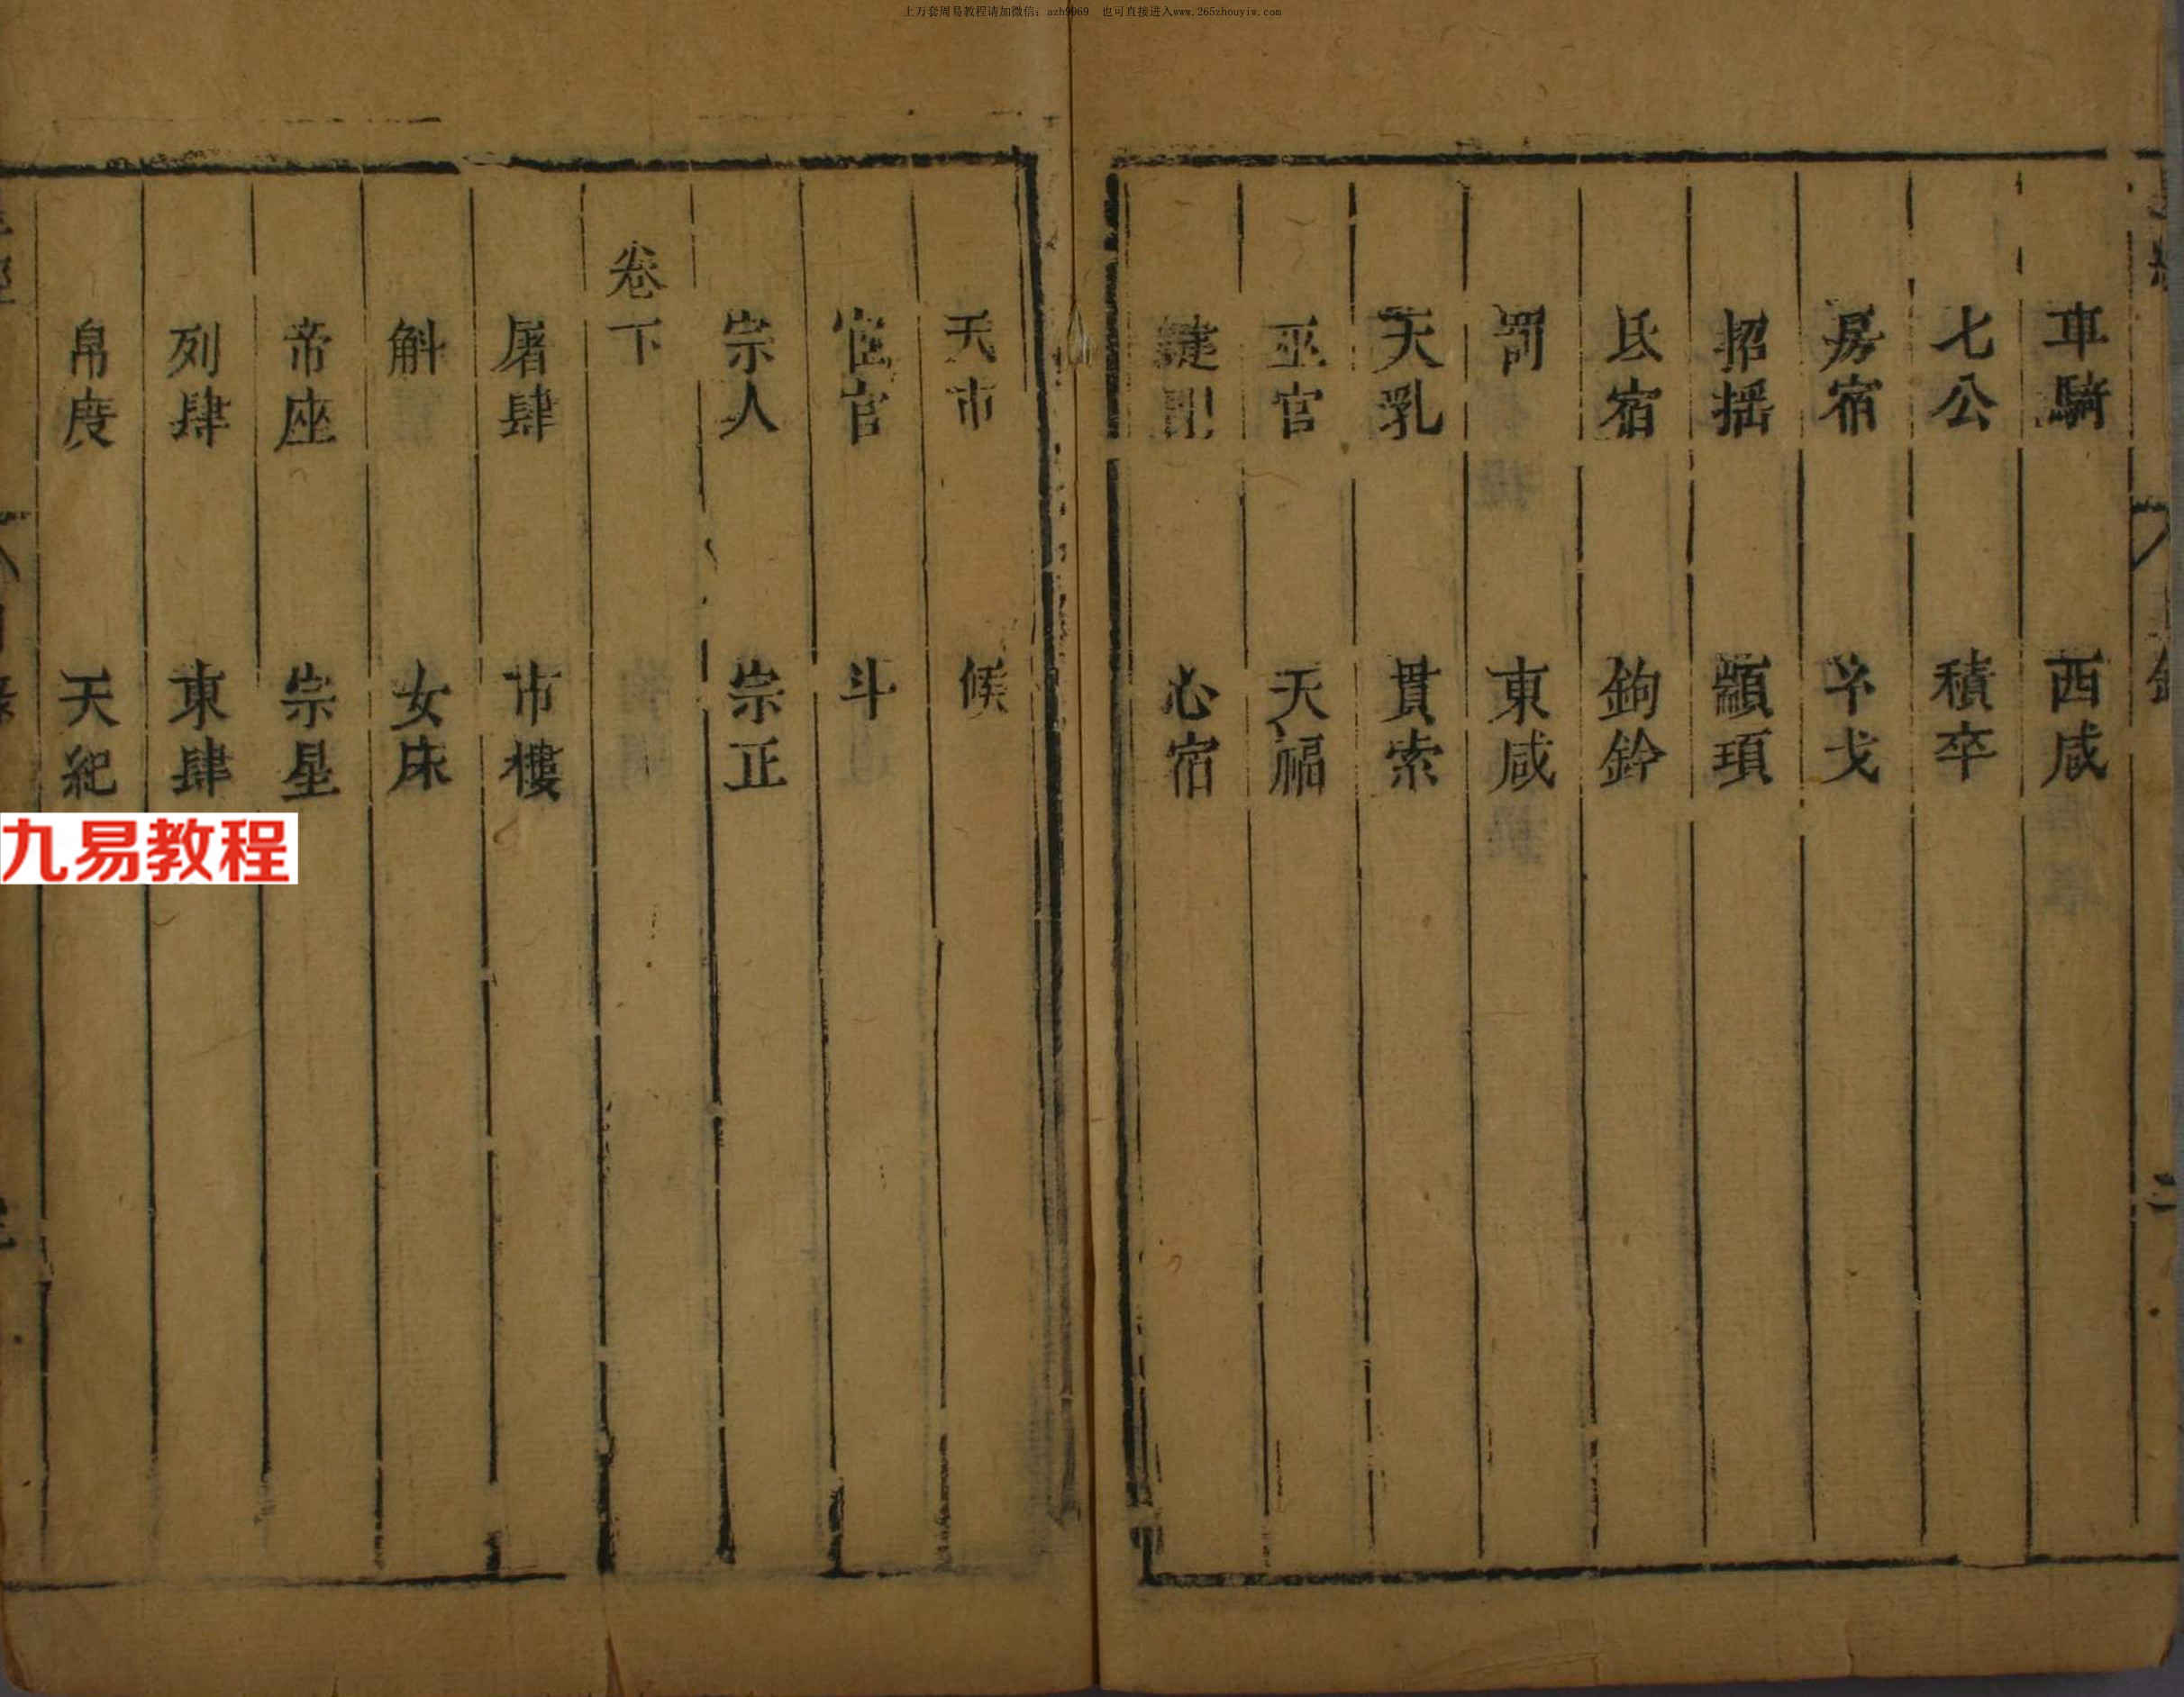 上万套周易教程请加微信：azh9069　也可直接进入www.265zhouyiw.com
車騎　西咸
七公　積卒
房宿　𠦑戈
招揺　顓頊
氐宿　鉤鈐
罰　東咸
天乳　貫索
巫官　天福
鍵閉　心宿
天市　候
宦官　斗
宗人　宗正
卷下
屠肆　市樓
斛　女床
帝座　宗星
列肆　東肆
帛度　天紀
九易教程
二